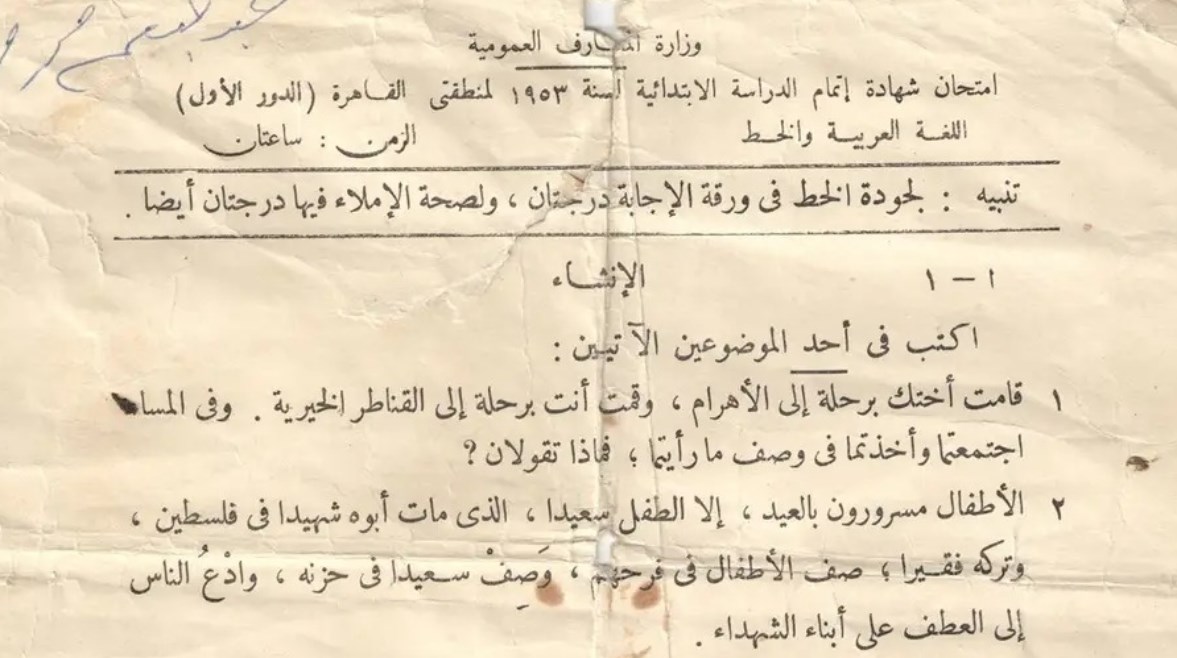 وزارة المعارف العمومية
امتحان شهادة إتمام الدراسة الابتدائية لسنة ١٩٥٣ لمنطقتى القاهرة (الدور الأول)
اللغة العربية والخط الزمن : ساعتان
تنبيه : لجودة الخط فى ورقة الإجابة درجتان ، ولصحة الإملاء فيها درجتان أيضا .
١ — ١ الإنشاء
اكتب فى أحد الموضوعين الآتيين :
١ قامت أختك برحلة إلى الأهرام ، وقمت أنت برحلة إلى القناطر الخيرية . وفى المساء
اجتمعتما وأخذتما فى وصف ما رأيتما ؛ فماذا تقولان ؟
٢ الأطفال مسرورون بالعيد ، إلا الطفل سعيدا ، الذى مات أبوه شهيدا فى فلسطين ،
وتركه فقيرا ؛ صف الأطفال فى فرحهم ، وَصِفْ سعيدا فى حزنه ، وادْعُ الناس
إلى العطف على أبناء الشهداء .